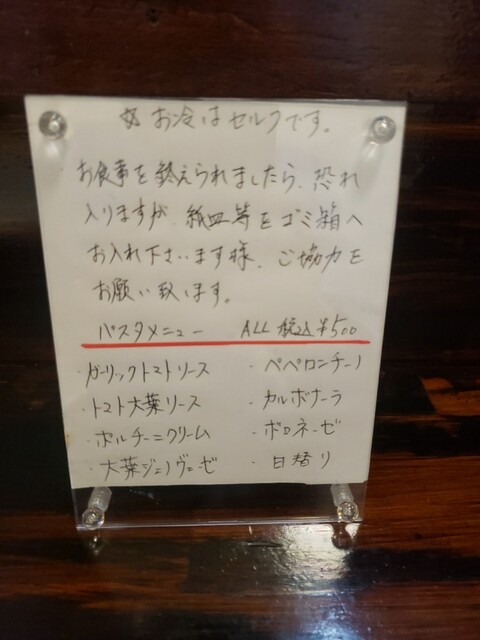 ※お冷はセルフです。
お食事を終えられましたら、恐れ
入りますが、紙皿等をゴミ箱へ
お入れ下さいます様、ご協力を
お願い致します。
パスタメニュー ALL 税込¥500
・ガーリックトマトソース ・ペペロンチーノ
・トマト大葉ソース ・カルボナーラ
・ポルチーニクリーム ・ボロネーゼ
・大葉ジェノヴェーゼ ・日替り